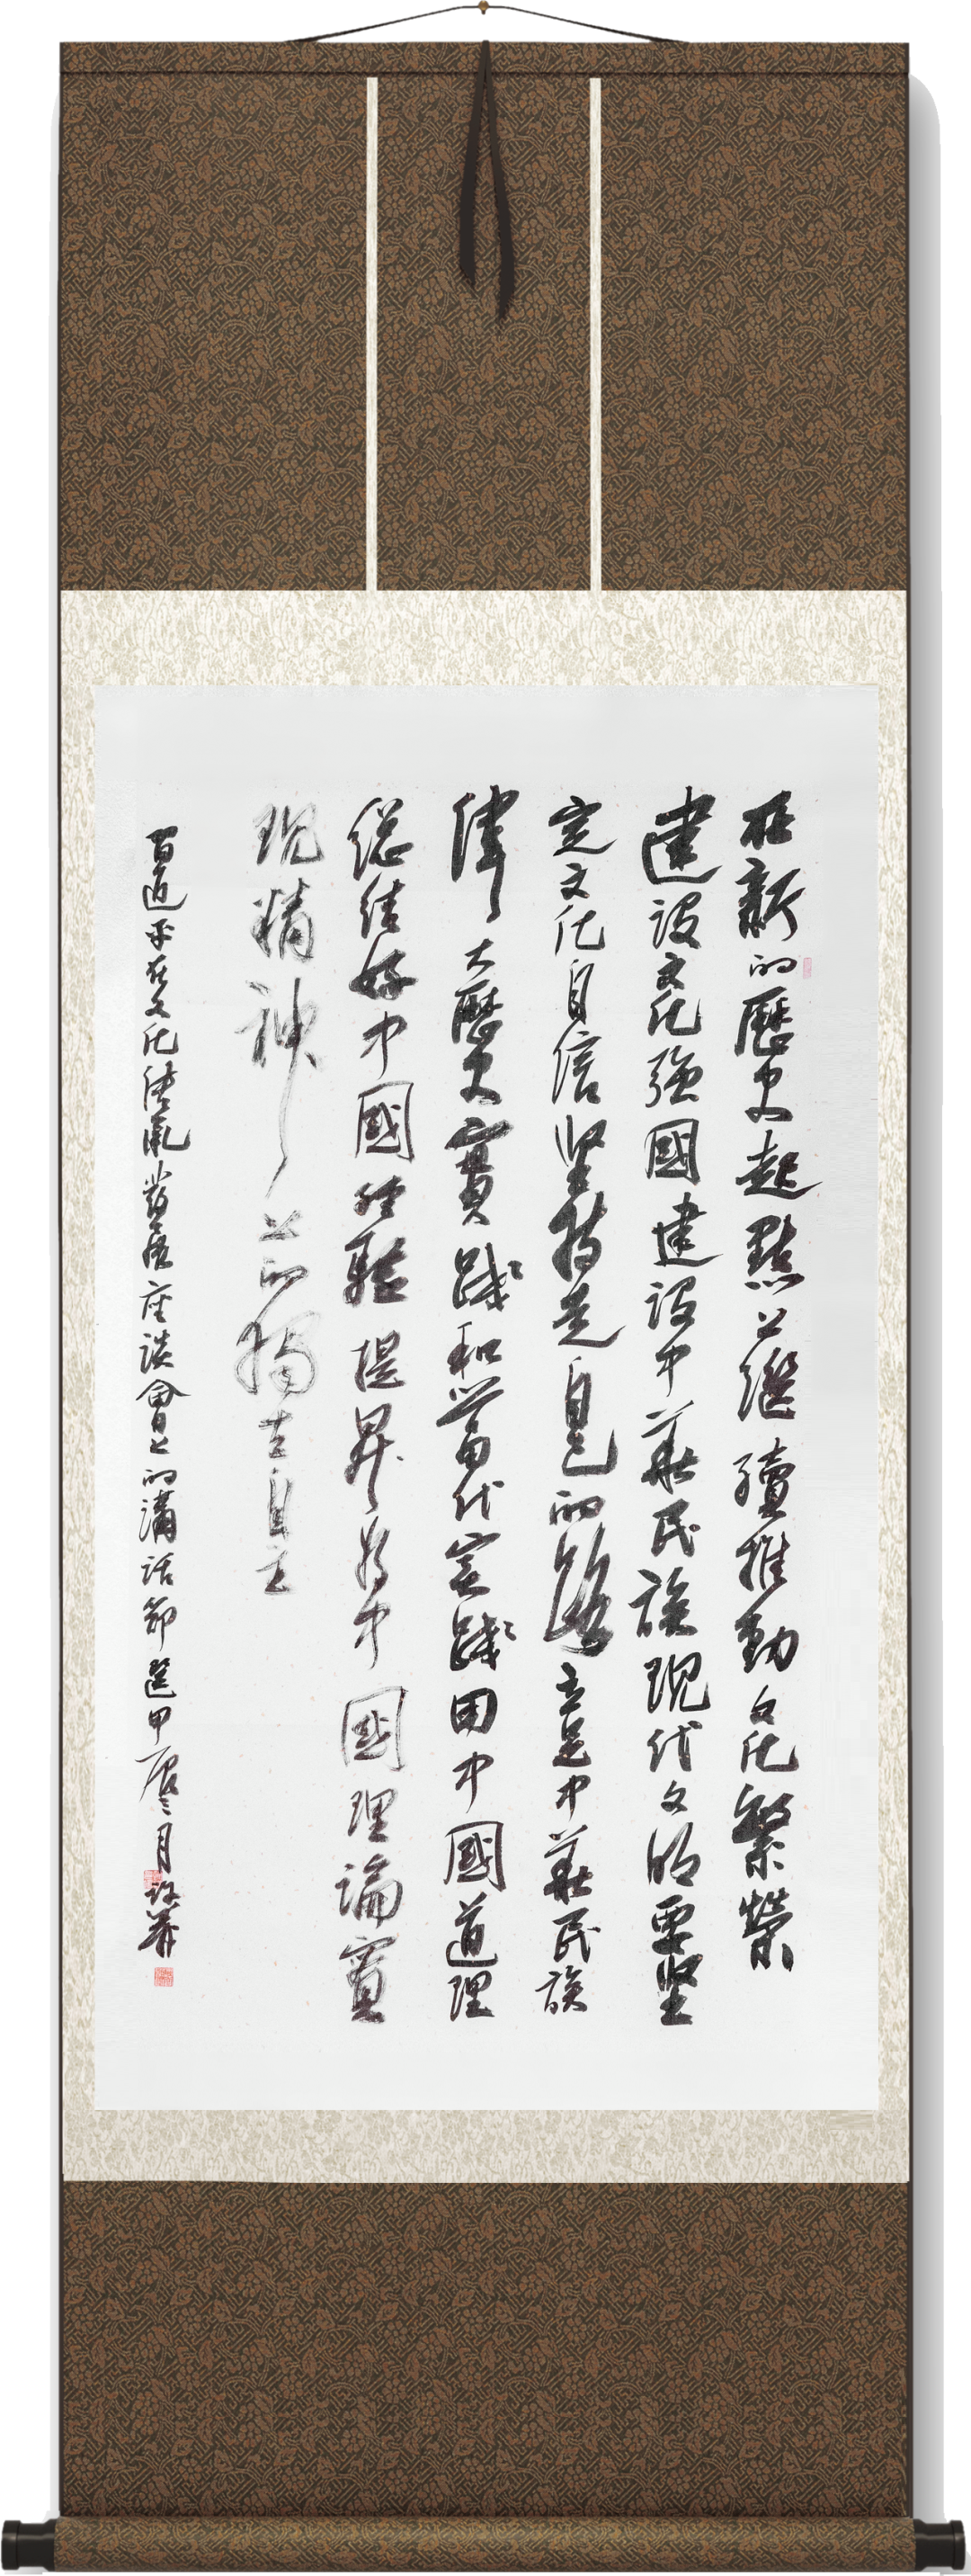 在新的歷史起點上繼續推動文化繁榮
建設文化強國建設中華民族現代文明要坚
定文化自信坚持走自己的路立足中華民族
偉大歷史實踐和當代實踐用中國道理
總結好中國經驗提昇為中國理論實
現精神上的獨立自主
習近平在文化傳承發展座談會上的講話節選甲辰月許